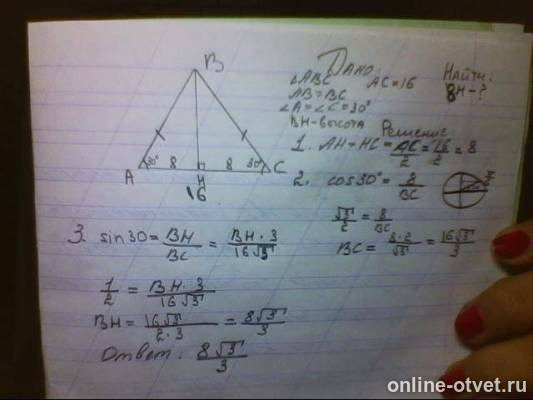 Дано:
△ABC AC=16
AB=BC
∠A=∠C=30°
BH-высота
Найти:
BH-?
B
A 30° 8 H 8 30° C
16
Решение
1. AH=HC=AC/2=16/2=8
2. cos30°=8/BC
√3/2=8/BC
BC=8·2/√3=16√3/3
3. sin30=BH/BC=BH·3/16√3
1/2=BH·3/16√3
BH=16√3/2·3=8√3/3
Ответ: 8√3/3
online-otvet.ru